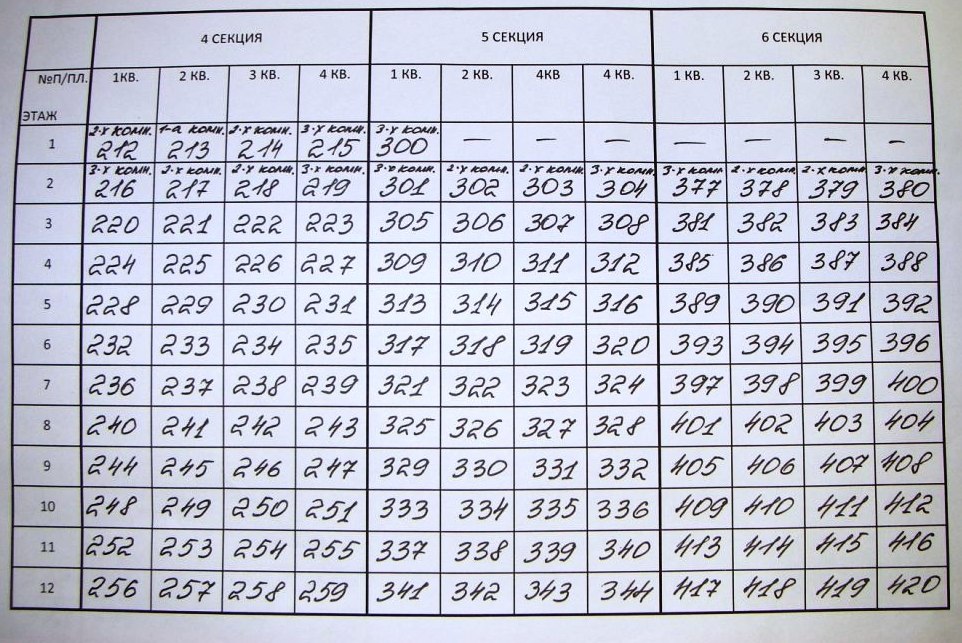 4 СЕКЦИЯ 5 СЕКЦИЯ 6 СЕКЦИЯ
№П/ПЛ. 1КВ. 2 КВ. 3 КВ. 4 КВ. 1 КВ. 2 КВ. 4КВ 4 КВ. 1 КВ. 2 КВ. 3 КВ. 4 КВ.
ЭТАЖ
2-х комн. 1-а комн. 2-х комн. 3-х комн. 3-х комн.
1 212 213 214 215 300 — — — — — — —
3-х комн. 2-х комн. 2-х комн. 3-х комн. 3-х комн. 2-х комн. 2-х комн. 3-х комн. 3-х комн. 2-х комн. 2-х комн. 3-х комн.
2 216 217 218 219 301 302 303 304 377 378 379 380
3 220 221 222 223 305 306 307 308 381 382 383 384
4 224 225 226 227 309 310 311 312 385 386 387 388
5 228 229 230 231 313 314 315 316 389 390 391 392
6 232 233 234 235 317 318 319 320 393 394 395 396
7 236 237 238 239 321 322 323 324 397 398 399 400
8 240 241 242 243 325 326 327 328 401 402 403 404
9 244 245 246 247 329 330 331 332 405 406 407 408
10 248 249 250 251 333 334 335 336 409 410 411 412
11 252 253 254 255 337 338 339 340 413 414 415 416
12 256 257 258 259 341 342 343 344 417 418 419 420